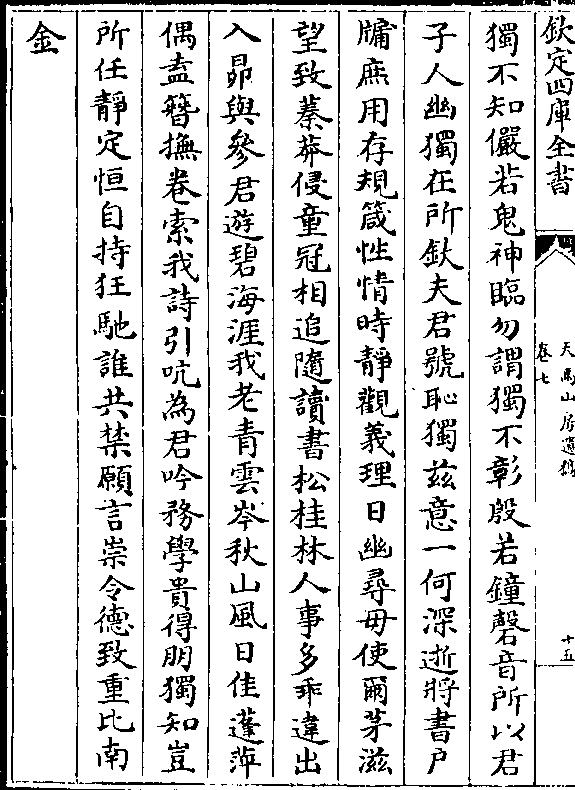 欽定四庫全書
天馬山房遺稿
卷七
十五
獨不知儼若鬼神臨勿謂獨不彰殷若鐘磬音所以君
子人幽獨在所欽夫君號恥獨兹意一何深逝將書户
牖庶用存規箴性情時靜觀義理日幽尋毋使爾茅滋
望致蓁莽侵童冠相追隨讀書松桂林人事多乖違出
入昴與參君遊碧海涯我老青雲岑秋山風日佳蓬萍
偶盍簪撫卷索我詩引吭為君吟務學貴得朋獨知豈
所任靜定恒自持狂馳誰共禁願言崇令德致重比南
金